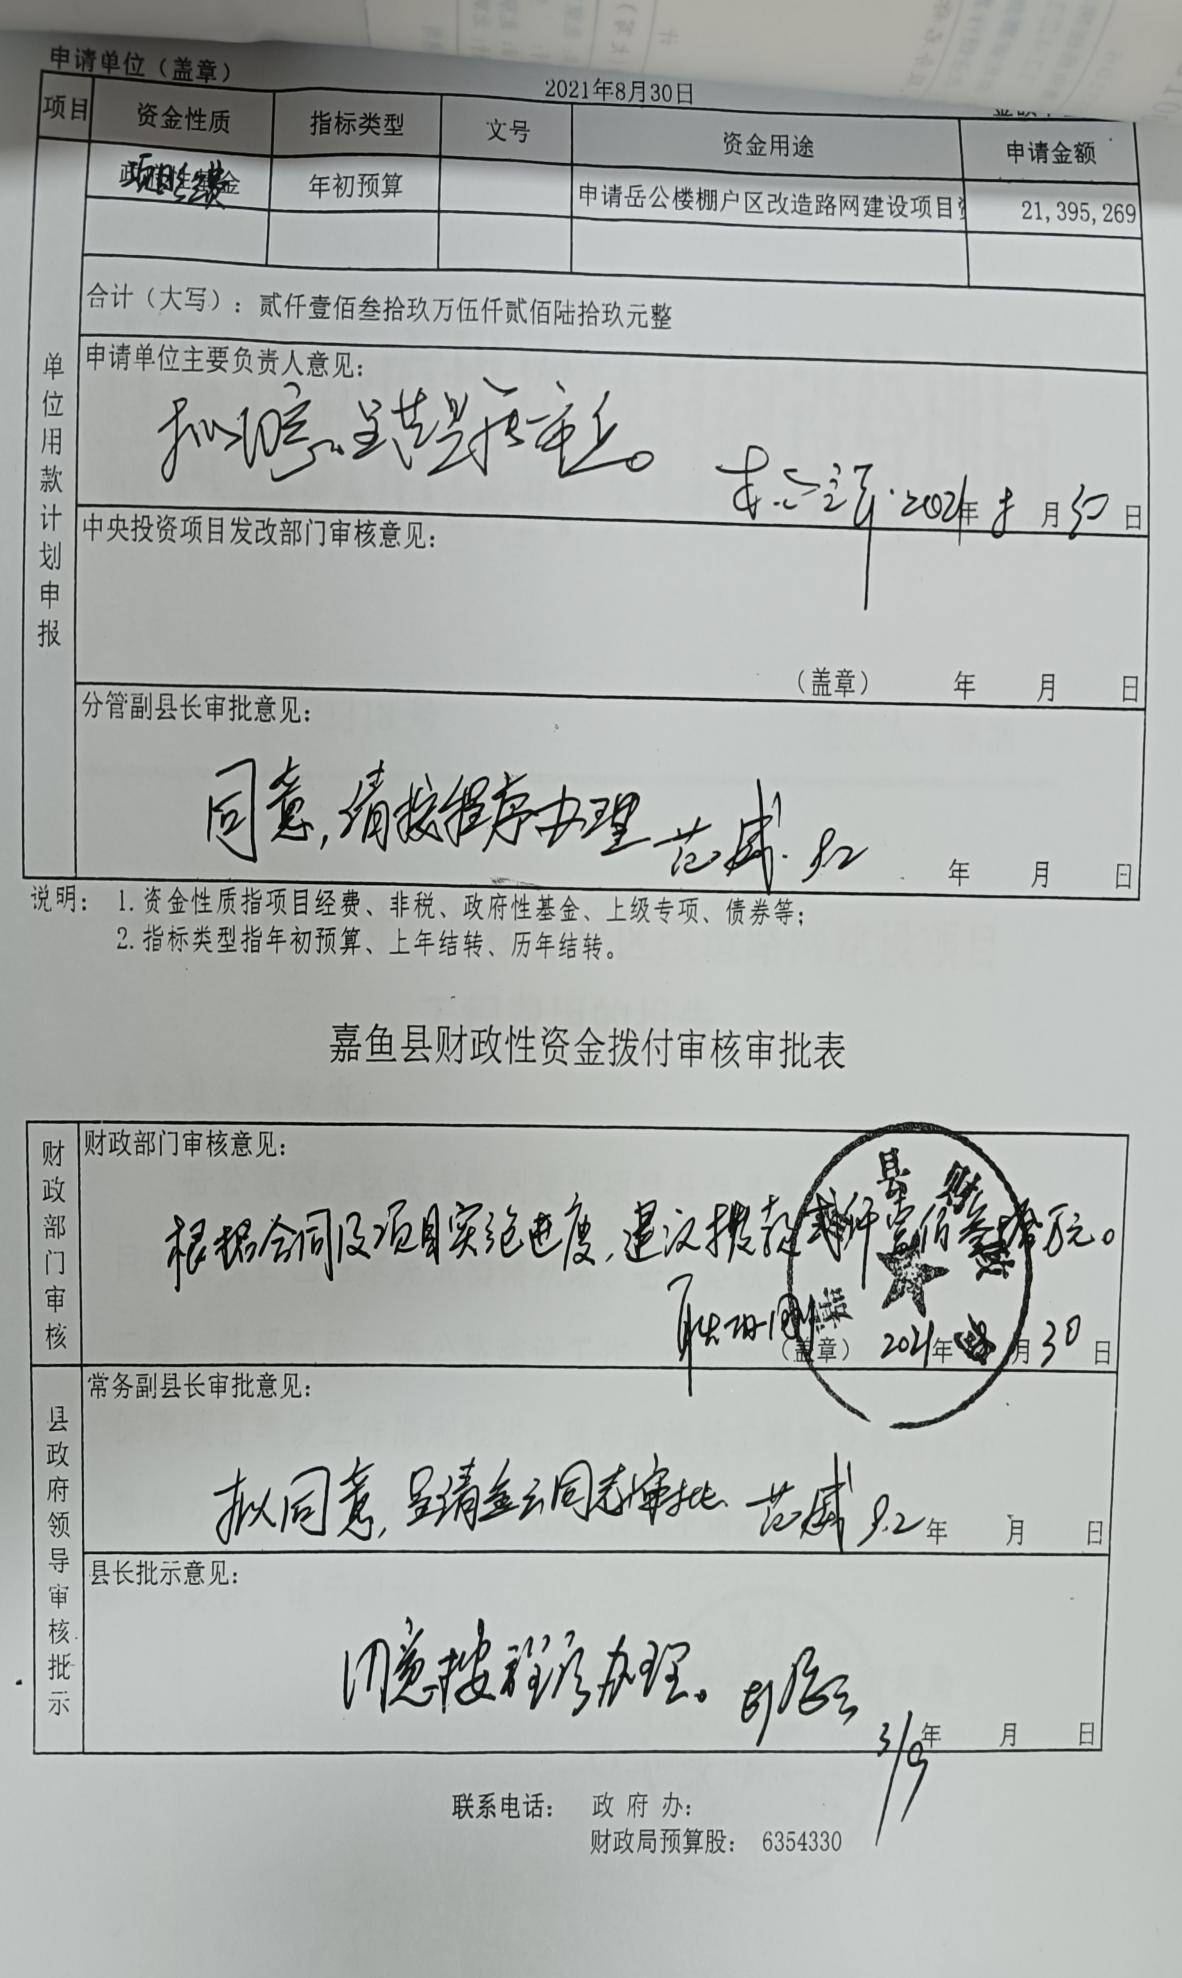 申请单位（盖章）
2021年8月30日
项目 资金性质 指标类型 文号 资金用途 申请金额
项目经费 年初预算 申请岳公楼棚户区改造路网建设项目 21,395,269
合计（大写）：贰仟壹佰叁拾玖万伍仟贰佰陆拾玖元整
单位用款计划申报
申请单位主要负责人意见：
2021年 月30日
中央投资项目发改部门审核意见：
（盖章） 年 月 日
分管副县长审批意见：
同意，请按程序办理 范威 9.2 年 月 日
说明： 1.资金性质指项目经费、非税、政府性基金、上级专项、债券等；
2.指标类型指年初预算、上年结转、历年结转。
嘉鱼县财政性资金拨付审核审批表
财政部门审核
财政部门审核意见：
根据合同及项目实施进度，建议拨款贰仟壹佰叁拾 万元。
（盖章） 2021年 月30日
县政府领导审核批示
常务副县长审批意见：
拟同意，呈请金云同志审批 范威 9.2 年 月 日
县长批示意见：
同意按程序办理。 3/9 年 月 日
联系电话： 政府办：
财政局预算股： 6354330